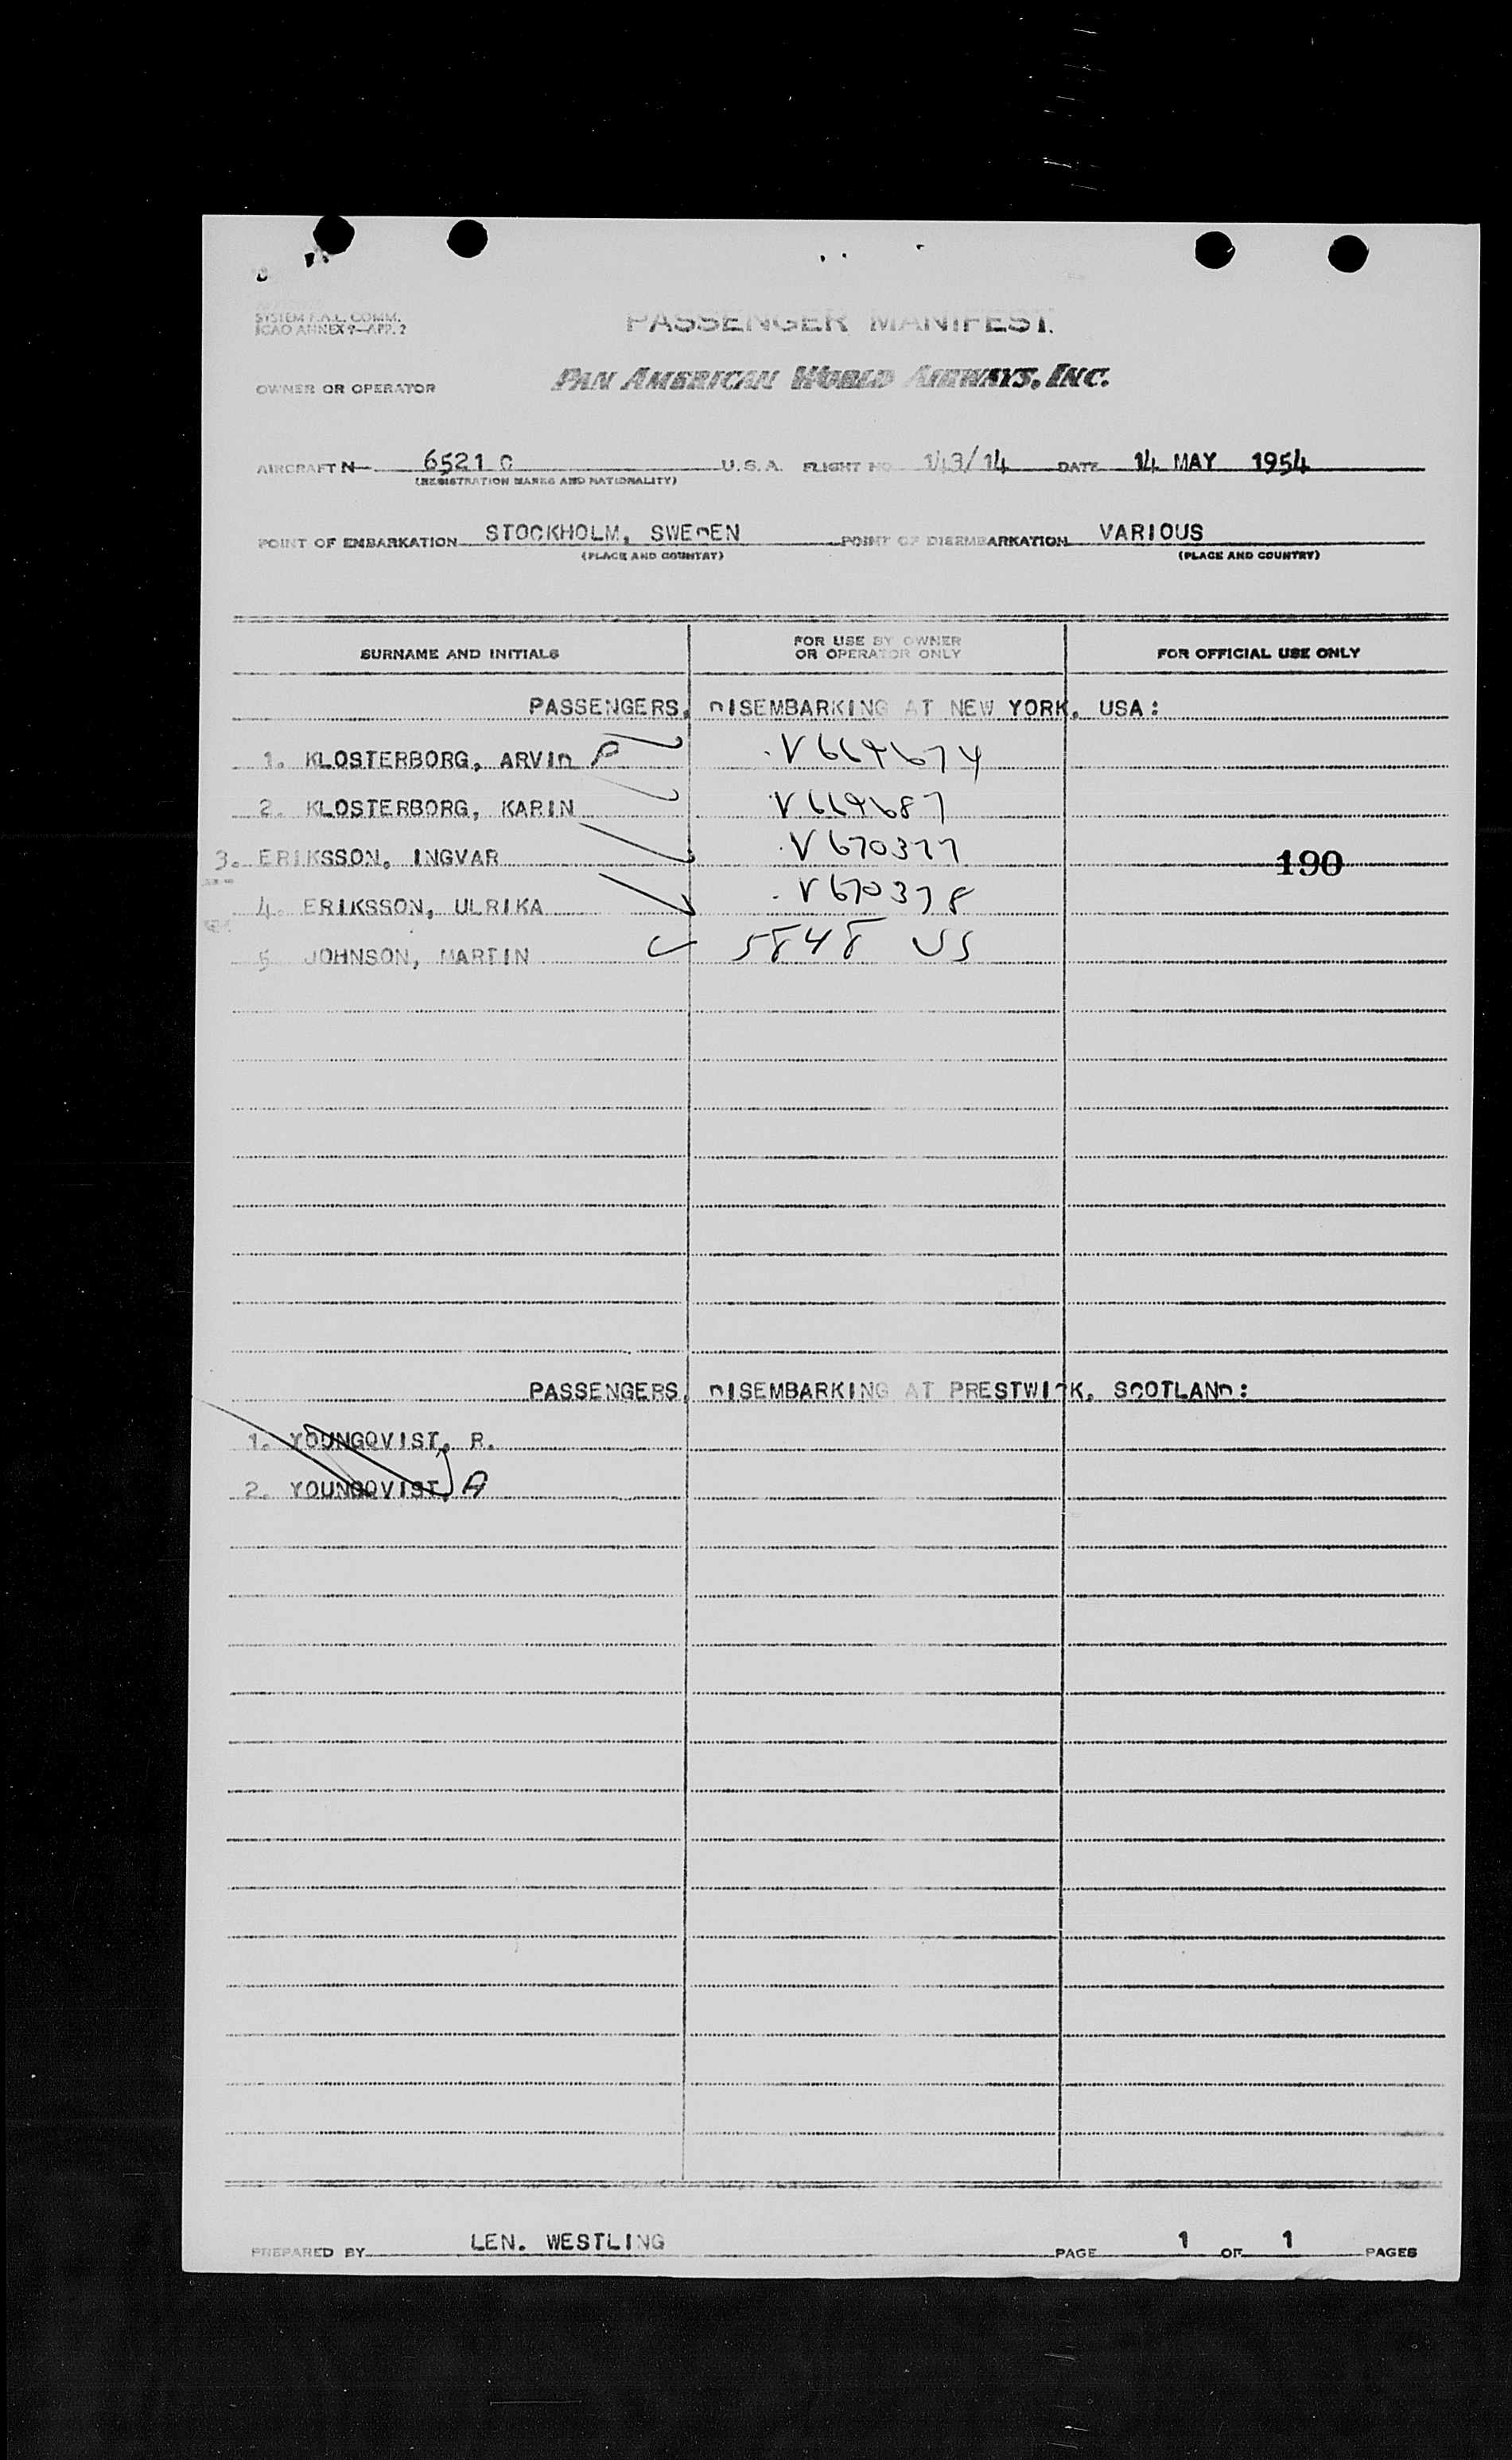 SYSTEM F.A.L. COMM.
ICAO ANNEX 9—APP. 2
PASSENGER MANIFEST
OWNER OR OPERATOR PAN AMERICAN WORLD AIRWAYS, INC.
AIRCRAFT N 6521 C U.S.A. FLIGHT NO 143/14 DATE 14 MAY 1954
(REGISTRATION MARKS AND NATIONALITY)
POINT OF EMBARKATION STOCKHOLM, SWEDEN POINT OF DISEMBARKATION VARIOUS
(PLACE AND COUNTRY) (PLACE AND COUNTRY)
SURNAME AND INITIALS FOR USE BY OWNER OR OPERATOR ONLY FOR OFFICIAL USE ONLY
PASSENGERS, DISEMBARKING AT NEW YORK, USA:
1. KLOSTERBORG, ARVID P V669674
2. KLOSTERBORG, KARIN V669687
3. ERIKSSON, INGVAR V670377 190
4. ERIKSSON, ULRIKA V670378
5 JOHNSON, MARTIN 5848 US
PASSENGERS, DISEMBARKING AT PRESTWICK, SCOTLAND:
1. YOUNGQVIST, R.
2. YOUNGQVIST, A
PREPARED BY LEN. WESTLING PAGE 1 OF 1 PAGES